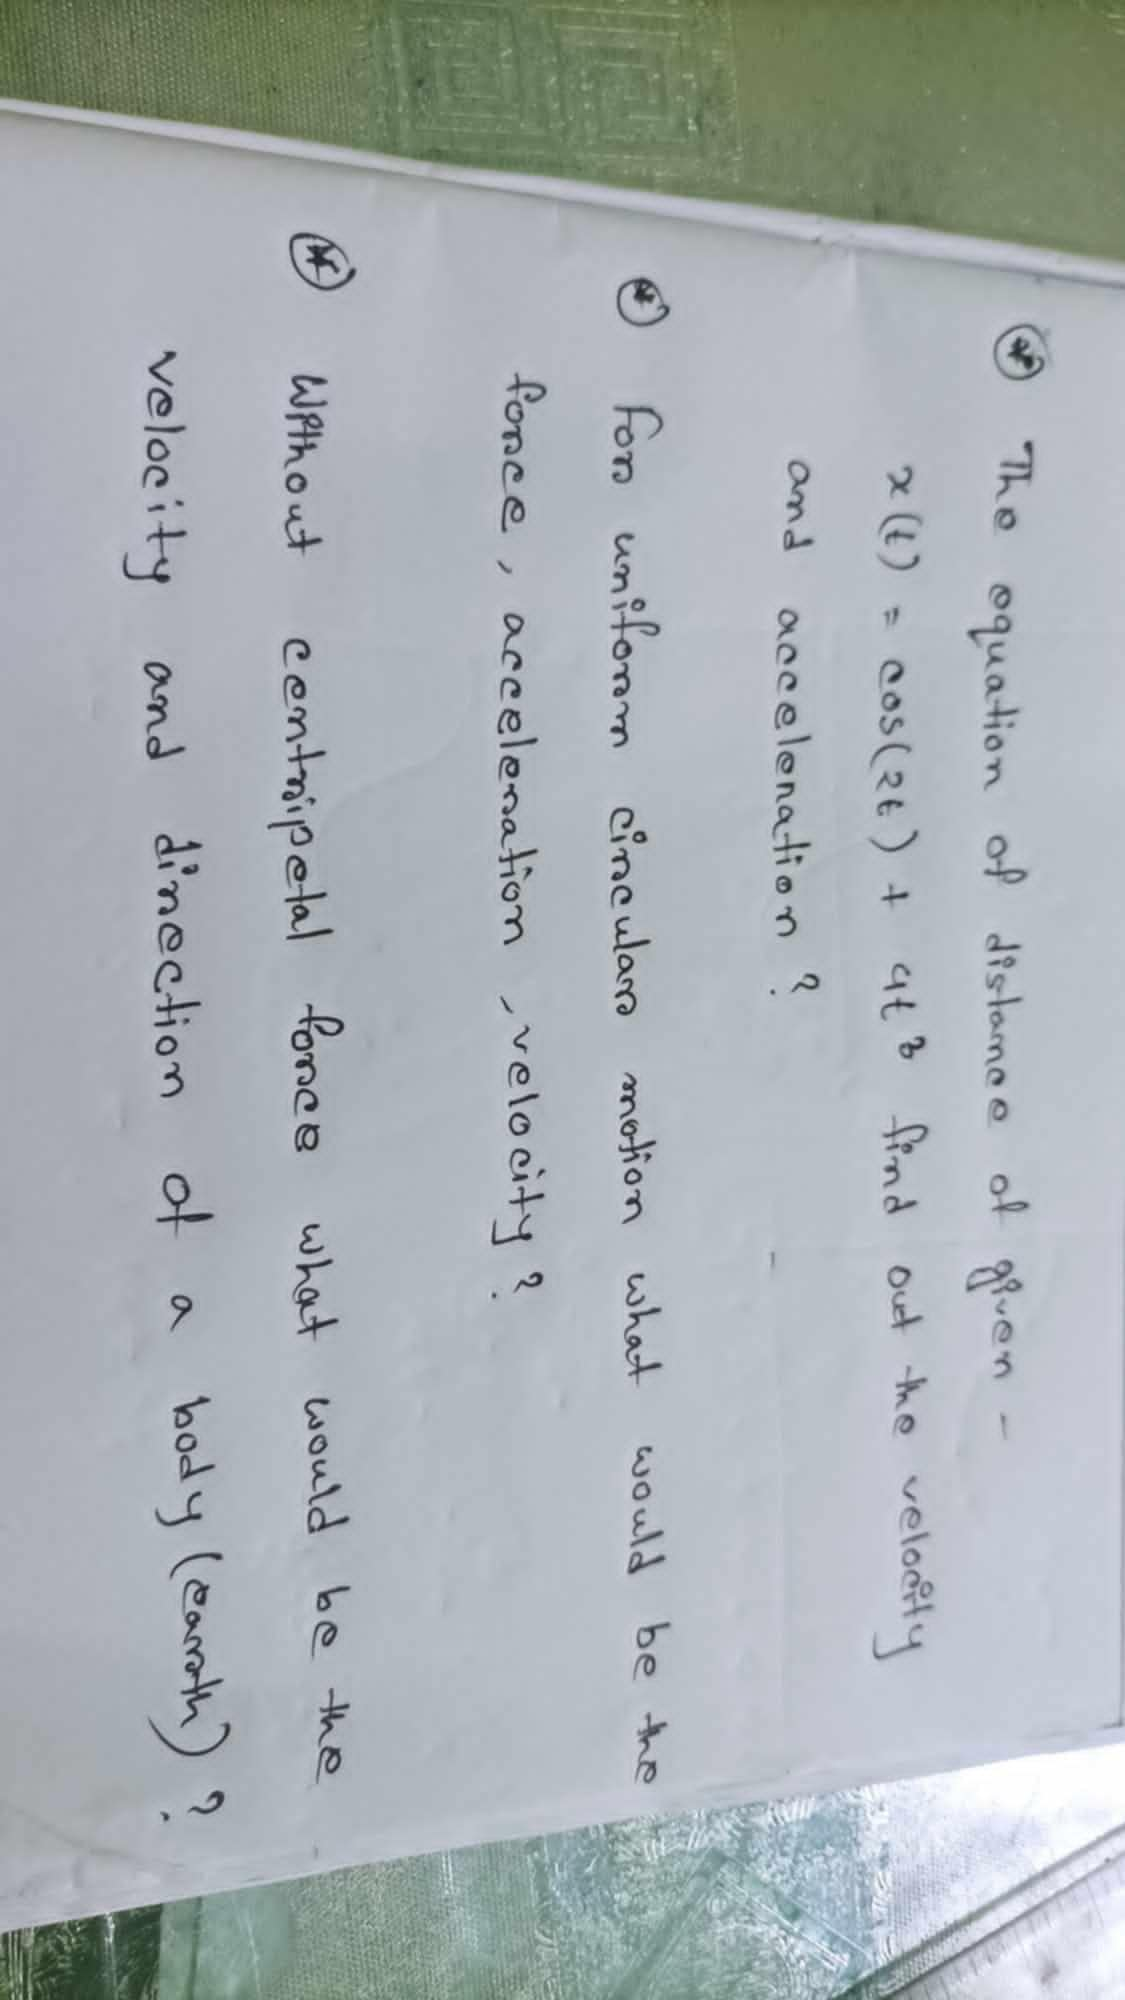 ⊛ The equation of distance of given -
x(t) = cos(2t) + 4t³ find out the velocity
and acceleration ?
⊛ For uniform circular motion what would be the
force, acceleration, velocity?
⊛ Without centripetal force what would be the
velocity and direction of a body (earth) ?